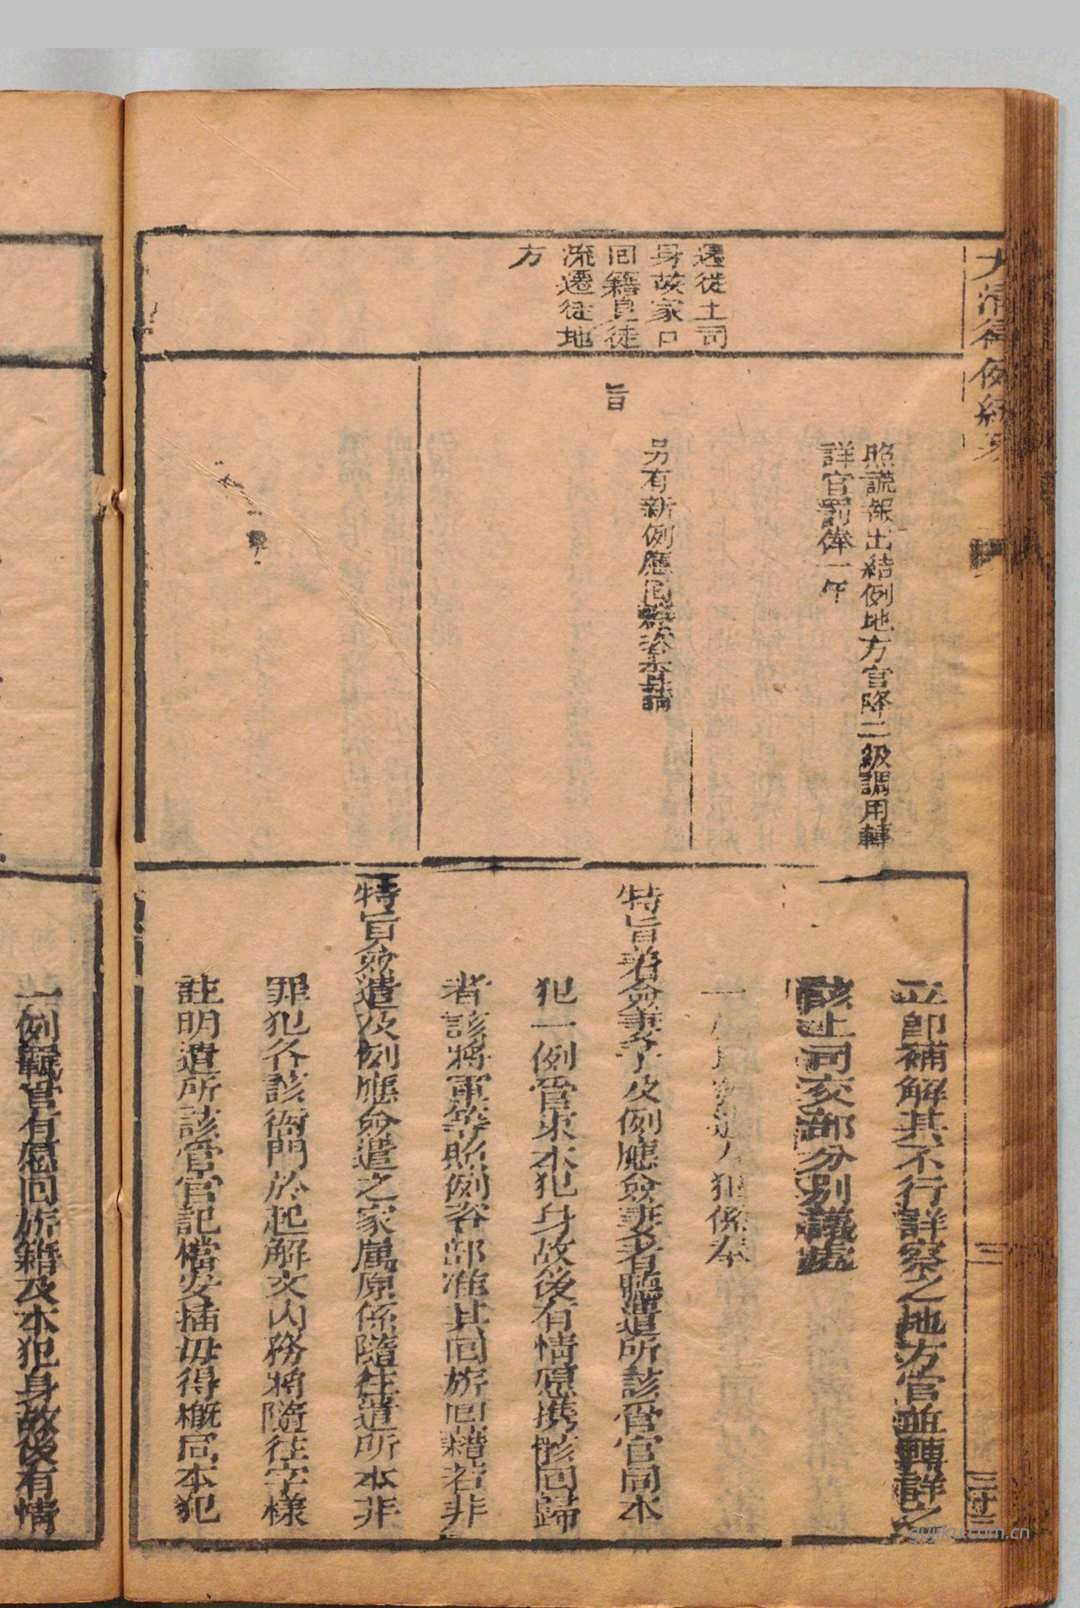 大清律例統纂
遷徙土司
身故家口
回籍見徒
流遷徙地
方
照謊報出結例地方官降二級調用轉
詳官罰俸一年
另有新例應回籍
旨
立即補解其不行詳察之地方官並轉詳之
該上司交部分別議處
一 人犯係奉
特旨著僉妻子及例應僉妻者聽遣所該管官同本
犯一例管束本犯身故後有情愿携骸回歸
者該將軍等照例咨部准其回旂回籍若非
特旨僉遣及例應僉遣之家屬原係隨往遣所本非
罪犯各該衙門於起解文内務將隨往字樣
註明遣所該管官記檔安插毋得概同本犯
一例羈管有愿回旂籍及本犯身故後有情
gujiku.com.cn